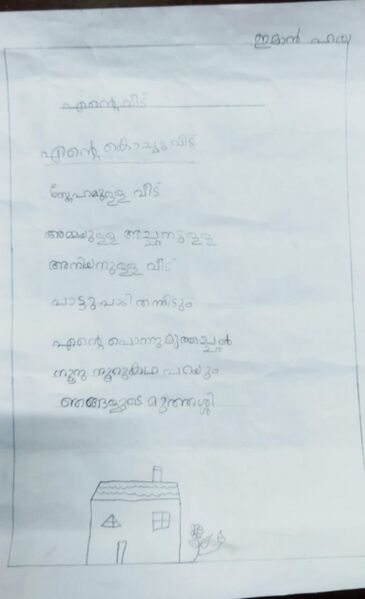 ഇമാൻ ഹയ
എന്റെ വീട്
എന്റെ കൊച്ചു വീട്
സ്നേഹമുള്ള വീട്
അമ്മയുള്ള അച്ഛനുള്ള
അനിയനുള്ള വീട്
പാട്ടു പാടി തന്നിടും
എന്റെ പൊന്നുമുത്തച്ഛൻ
നൂറു നൂറുകഥ പറയും
ഞങ്ങളുടെ മുത്തശ്ശി